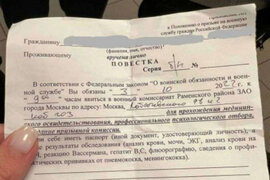 к Положению о призыве на военную
службу граждан Российской Федерации
Гражданину
(фамилия, имя, отчество)
Проживающему
вручена лично
ПОВЕСТКА
Серия Б/Н
В соответствии с Федеральным законом "О воинской обязанности и военной
службе" Вы обязаны " 3 " 10 202
часам явиться в военный комиссариат Раменского района ЗАО
города Москвы по адресу: Москва,
каб 403 для прохождения медицин-
ского освидетельствования, профессионального психологического отбора,
заседание призывной комиссии.
При себе иметь паспорт (иной документ, удостоверяющий личность), а
результаты обследования (анализ крови, моче, ЭКГ, анализ крови на
реакцию Вассермана, гепатит В,С, флюорография, сведения о профи-
лактических прививках от пневмококка, менингококка).